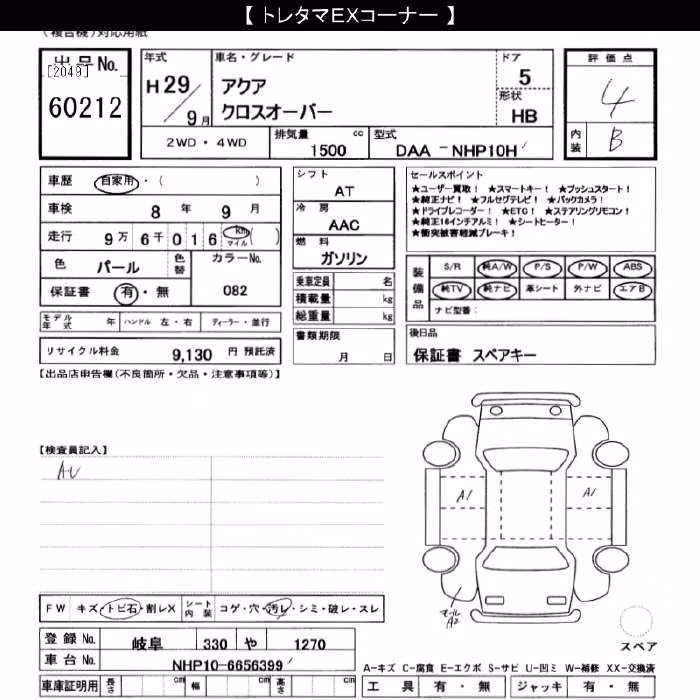 【 トレタマEXコーナー 】
(複合機)対応用紙
出品No.
[2049]
60212
年式
H29/9月
車名・グレード
アクア
クロスオーバー
ドア
5
形状
HB
評価点
4
内装
B
2WD・4WD
排気量 cc
1500
型式
DAA -NHP10H
車歴 自家用・( )
車検 8年 9月
走行 9万 6千 016 km マイル ( )
色 パール
色替
カラーNo.
082
保証書 有・無
シフト
AT
冷房
AAC
燃料
ガソリン
乗車定員 名
積載量 kg
総重量 kg
セールスポイント
★ユーザー買取! ★スマートキー! ★プッシュスタート!
★純正ナビ! ★フルセグテレビ! ★バックカメラ!
★ドライブレコーダー! ★ETC! ★ステアリングリモコン!
★純正16インチアルミ! ★シートヒーター!
★衝突被害軽減ブレーキ!
装備品
S/R 純A/W P/S P/W ABS
純TV 純ナビ 革シート 外ナビ エアB
ナビ型番:
モデル年式 年 ハンドル 左・右 ディーラー・並行
書類期限
月 日
後日品
保証書 スペアキー
リサイクル料金 9,130 円 預託済
【出品店申告欄(不良箇所・欠品・注意事項等)】
【検査員記入】
A・U
A1
A1
モール
A2
スペア
FW キズ・トビ石・割レX
シート内装 コゲ・穴・汚レ・シミ・破レ・スレ
登録No. 岐阜 330 や 1270
車台No. NHP10-6656399
A-キズ C-腐食 E-エクボ S-サビ U-凹ミ W-補修 XX-交換済
車庫証明用 長さ cm 幅 cm 高さ cm
工具 有・無 ジャッキ 有・無